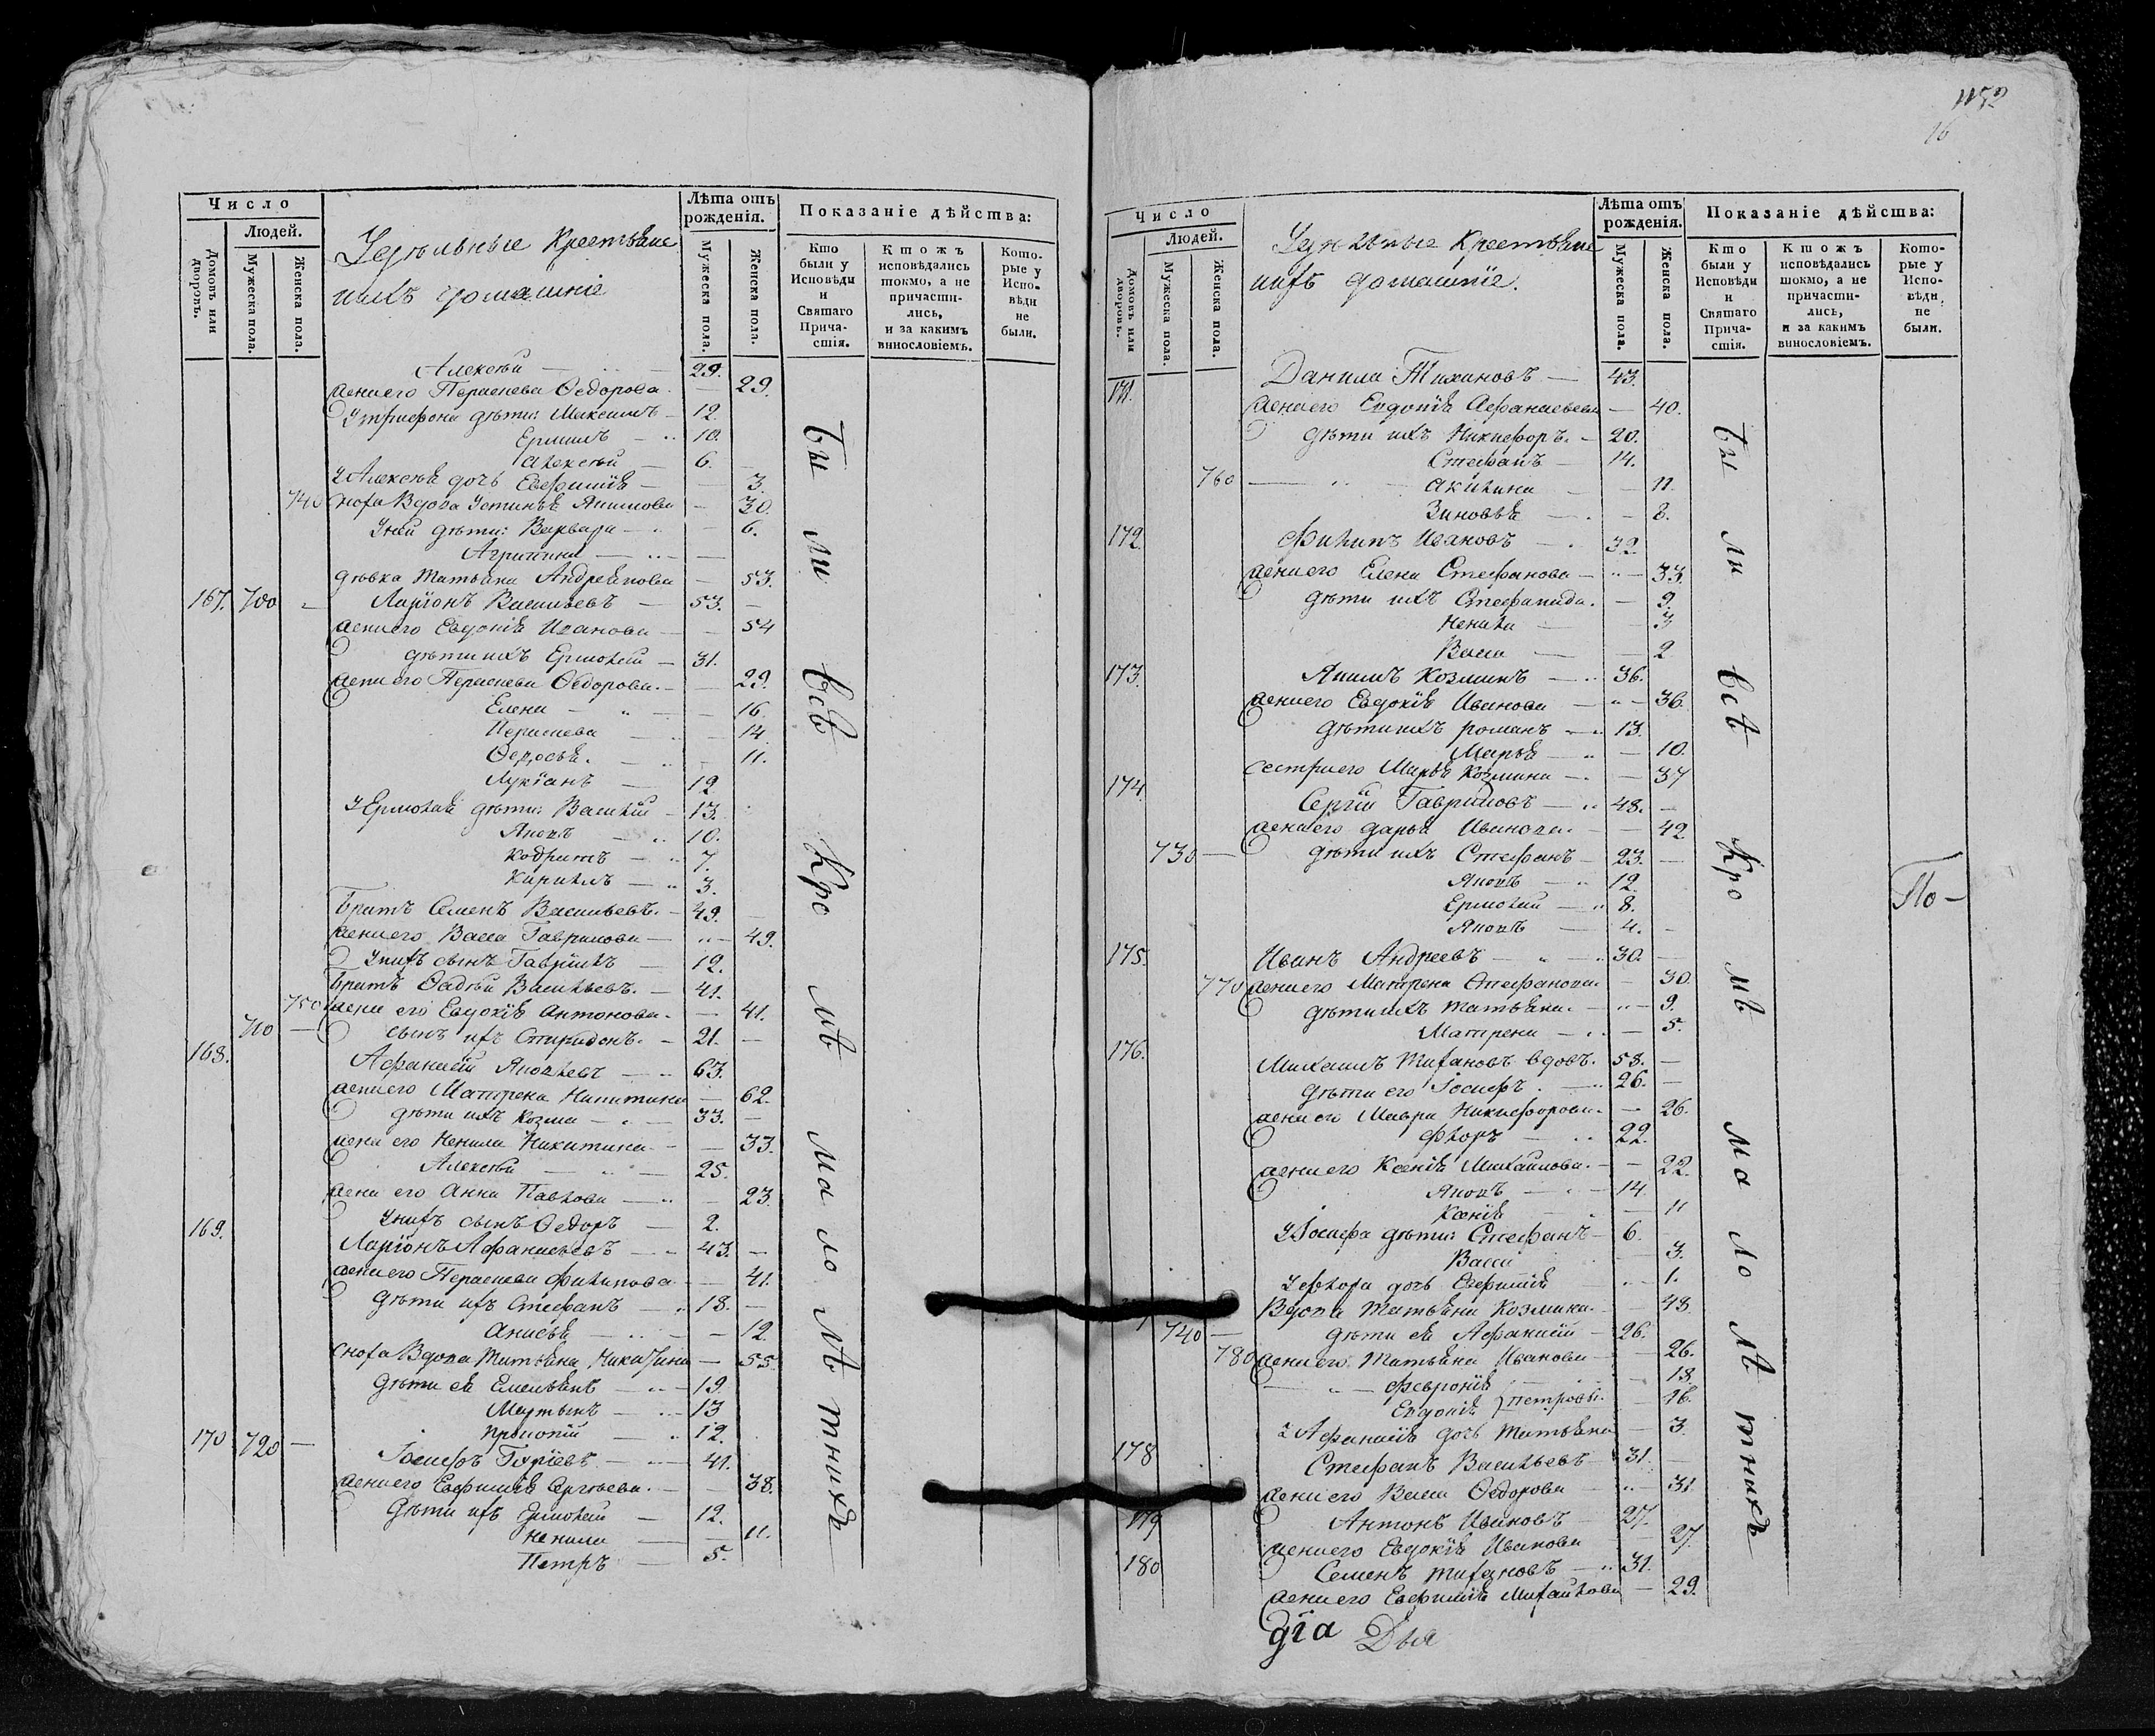 Число
Людей.
Домовъ или дворовъ.
Мужеска пола.
Женска пола.
Удѣльные Крестьяне
ихъ домашнiе
Лѣта отъ рожденiя.
Мужеска пола.
Женска пола.
Показанiе дѣйства:
Кто были у Исповѣди и Святаго Причастiя.
Ктожъ исповѣдались токмо, а не причастились, и за какимъ винословiемъ.
Которые у Исповѣди не были.
Алексѣй 29.
жена его Параскева Ѳедорова 29.
У трифона дѣти: Максимъ 12.
Ермилъ 10.
Алексѣй 6.
У Алексѣя дочь Евфимiя 3.
740 сноха Вдова Устинья Якимова 30.
У ней дѣти: Варвара 6.
Агрипина
дѣвка Татьяна Андреянова 53.
167. 700 Ларiонъ Васильевъ 53.
жена его Евдокiя Иванова 54
дѣти ихъ Ермолай 31.
жена его Параскева Ѳедорова 29.
Елена 16.
Параскева 14
Ѳедосья 11.
Лукiанъ 12
У Ермолая дѣти: Василiй 13.
Яковъ 10.
Кодратъ 7.
Кирилъ 3.
братъ Семенъ Васильевъ. 49.
жена его Васса Гаврилова 49.
У нихъ сынъ Гаврiилъ 12.
братъ Ѳадѣй Васильевъ. 41.
750 жена его Евдокiя Антонова 41.
710 сынъ ихъ Спиридонъ. 21.
168. Афанасiй Яковлевъ 63.
жена его Матрена Никитина 62.
дѣти ихъ Козма 33.
жена его Ненила Никитина 33.
Алексѣй 25.
жена его Анна Павлова 23.
У нихъ сынъ Ѳедоръ 2.
169. Ларiонъ Афанасьевъ 43.
жена его Параскева Филипова 41.
дѣти ихъ Стефанъ 18.
Анисья 12
сноха Вдова Татьяна Никитина 55.
дѣти ея Емельянъ 19.
Мартынъ 13
Прокопiй 12.
170 720 Iосифъ Гурiевъ 41.
жена его Евфимiя Сергѣева. 38.
дѣти ихъ Ермолай 12.
Ненила 11.
Петръ 5.
Были всѣ Кромѣ малолѣтнихъ
1152
16
Число
Людей.
Домовъ или дворовъ.
Мужеска пола.
Женска пола.
Удѣльные Крестьяне
ихъ домашнiе.
Лѣта отъ рожденiя.
Мужеска пола.
Женска пола.
Показанiе дѣйства:
Кто были у Исповѣди и Святаго Причастiя.
Ктожъ исповѣдались токмо, а не причастились, и за какимъ винословiемъ.
Которые у Исповѣди не были.
171. Данила Тихановъ 43.
жена его Евдокiя Афанасьева 40.
дѣти ихъ Никифоръ. 20.
Стефанъ 14.
760 Акилина 11.
Зиновья 8.
172. Филипъ Ивановъ 32.
жена его Елена Стефанова 33.
дѣти ихъ Степанида. 9.
Ненила 3
Васса 2
173. Якимъ Козминъ 36.
жена его Евдокiя Иванова 36.
дѣти ихъ романъ 13.
Марья 10.
сестра его Марья Козмина 37
174. Сергiй Гавриловъ 48.
жена его дарья Иванова. 42.
730 дѣти ихъ Стефанъ 23.
Яковъ 12.
Ермолай 8.
Яковъ 4.
175. Иванъ Андреевъ 30.
770 жена его Матрена Стефанова 30.
дѣти ихъ Татьяна. 9.
Матрена 5.
176. Михаилъ Тихановъ вдовъ. 58.
дѣти его Iосифъ. 26.
жена его Мавра Никифорова. 26.
Флоръ 22.
жена его Ксенiя Михаилова. 22.
Яковъ 14
Ксенiя 11
У Iосифа дѣти: Стефанъ 6.
Васса 3.
У флора дочь Евфимiя 1.
Вдова Татьяна Козмина. 48.
740 дѣти ея Афанасiй 26.
780 жена его Татьяна Иванова 26.
Феврония 18.
Евдокiя } петровы. 16.
У Афанасiя дочь Татьяна 3.
178 Стефанъ Васильевъ 31.
жена его Васса Ѳедорова 31
179 Антонъ Ивановъ 27.
жена его Евдокiя Иванова 27.
180 Семенъ Тихановъ 31.
жена его Евфимiя Михайлова 29.
Были всѣ Кромѣ малолѣтнихъ
По-
дiа Дья